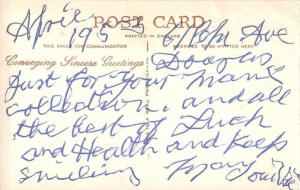 April
POST CARD
1953
PRINTED IN ENGLAND
Ave
THIS SPACE FOR COMMUNICATION
ADDRESSED TO BE WRITTEN HERE
Douglas
Conveying Sincere Greetings
Just for your Man's
collection, and all
the best of Luck
and Health and keep
smiling